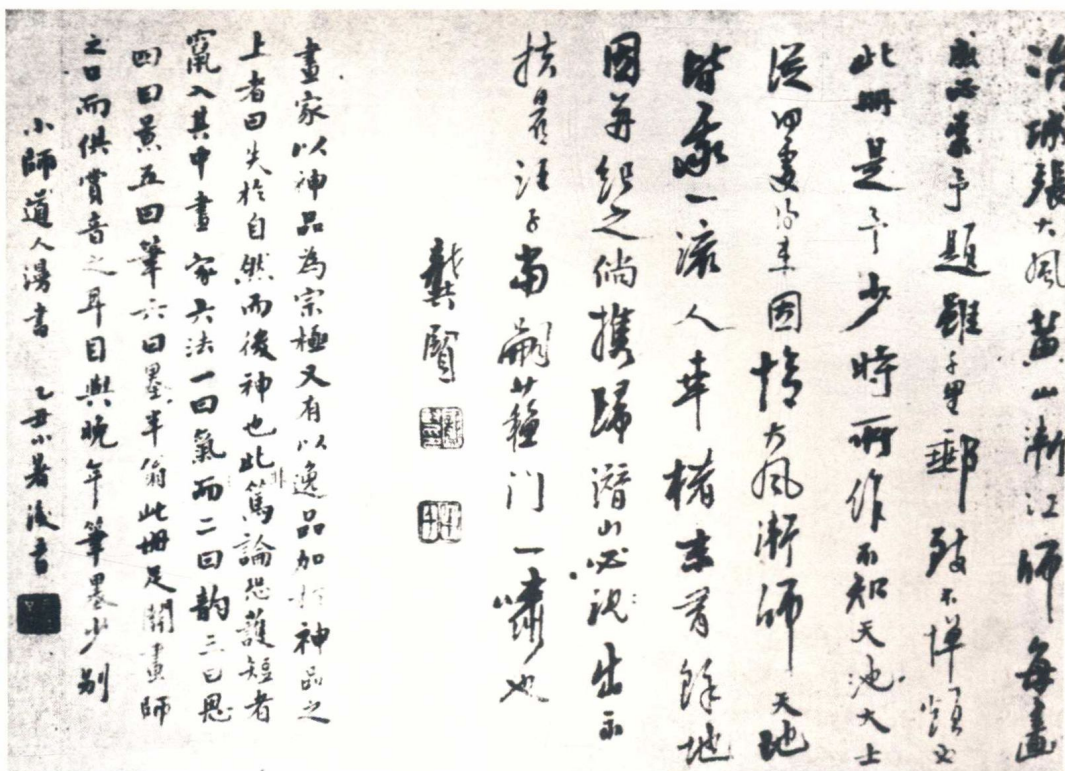 冶城張大風黃山漸江師每畫
成必索予題雖千里郵致不憚煩也
此冊是予少時所作不知天池大士
從何處得來因憶大風漸師天地
皆我一流人幸楮末有餘地
圖并紀之倘攜歸潛山必祝出示
扶晨注子當嗣蘇門一嘯也
龔賢
畫家以神品為宗極又有以逸品加於神品之
上者曰失於自然而後神也此篤論恐護短者
竄入其中畫家六法一曰氣而二曰韵三曰思
四曰景五曰筆六曰墨半翁此冊足開畫師
之口而供賞音之耳目與晚年筆墨少別
小師道人漫書 乙丑小暑後書